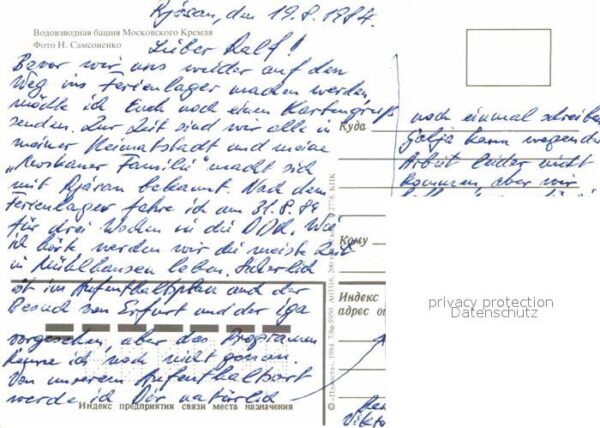 Rjásan, den 19.8.1984.
Водовзводная башня Московского Кремля
Фото Н. Самсоненко
Lieber Ralf!
Bevor wir uns wieder auf den
Weg ins Ferienlager machen werden,
möchte ich Euch noch einen Kartengruß
senden. Zur Zeit sind wir alle in
meiner Heimatstadt und meine
„Moskauer Familie" macht sich
mit Rjásan bekannt. Nach dem
Ferienlager fahre ich am 31.8.84
für drei Wochen in die DDR. Wie
ich hörte werden wir die meiste Zeit
in Mühlhausen leben. Sicherlich
ist im Aufenthaltsplan auch der
Besuch von Erfurt und der iga
vorgesehen, aber das Programm
kenne ich noch nicht genau.
Von unserem Aufenthaltsort
werde ich Dir natürlich
Индекс предприятия связи места назначения
noch einmal schreiben
Куда
Galja kann wegen der
Arbeit leider nicht
kommen, aber wir
Кому
Индекс
адрес
© «Планета» 1984
privacy protection
Datenschutz